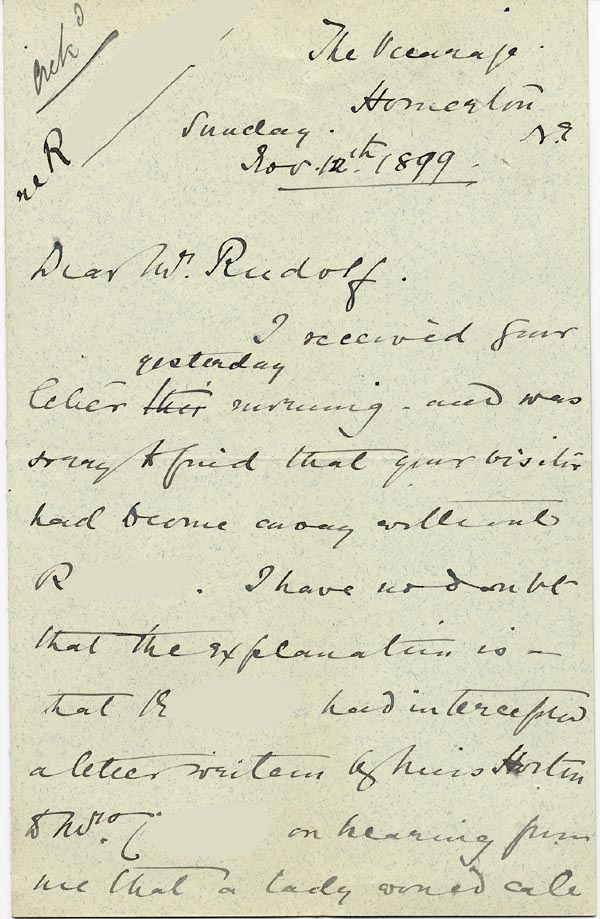 Ack^d
re R
The Vicarage.
Homerton
N.E
Sunday.
Nov. 12th. 1899.
Dear Mr. Rudolf.
I received your
yesterday
letter this morning - and was
sorry to find that your visitor
had to come away without
R . I have no doubt
that the explanation is -
that R had intercepted
a letter written by Miss Horton
to Mrs. C on hearing from
me that a lady would call